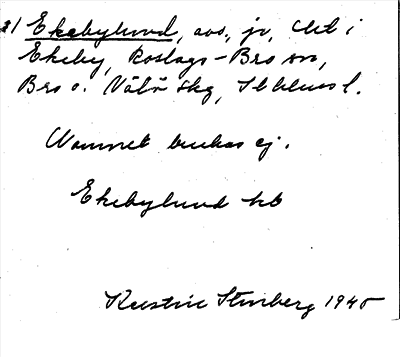 21 Ekebylund, avs., jr, del i
Ekeby, Roslags-Bro sn,
Bro o. Vätö skg, Sthlms l.
Namnet brukas ej.
Ekebylund kb
Kerstin Stenberg 1945